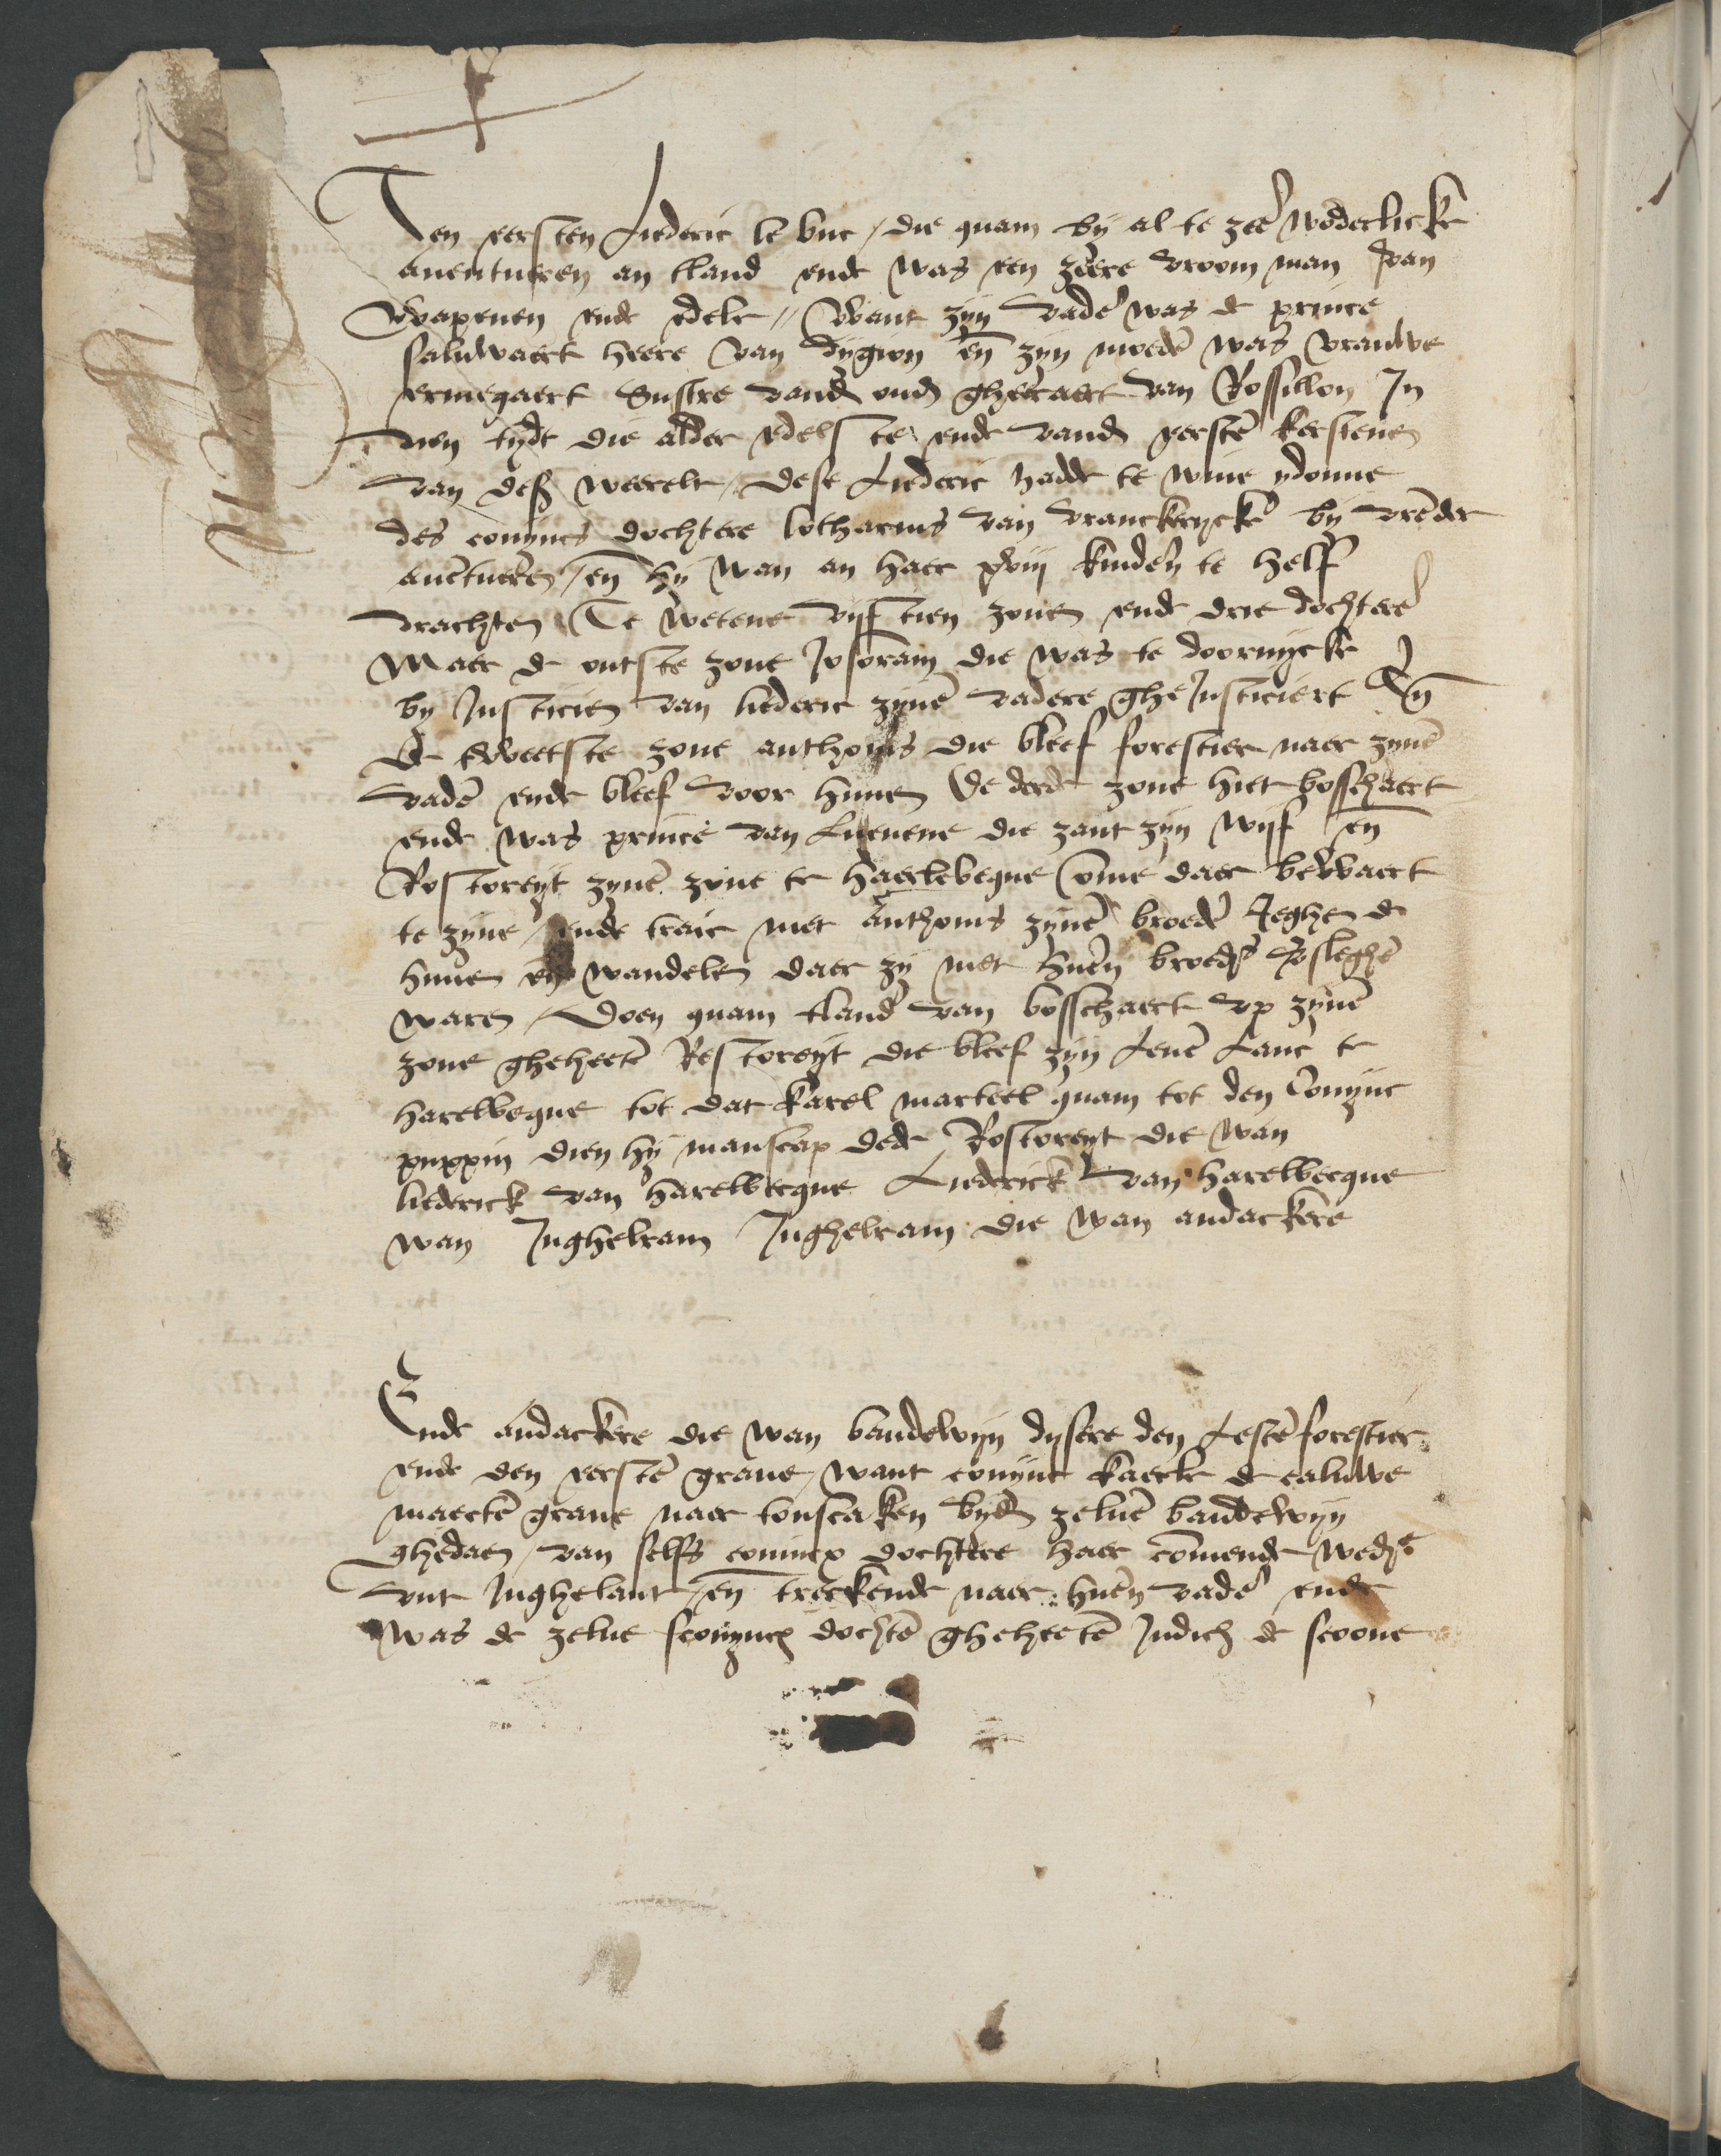 Ten eersten Liederic le buc / die quam by al te zeer wōderlicke
auentueren an tland ende was een zeere vroom man van
wapenen ende edele // want zyn vader was de prince
saluwaert heere van dygion eñ zyn moedr was vrauwe
ermegaert Sustre vandē oudē gheeraert van Rossillon In
dien tydt die alder edelste ende vandē eerste kerstenen
van deser weerelt / dese Liederic hadde te wiue ydonne
des conincs dochtere lotharius van vranckerycke by vrēder
auētueren / eñ hy wan an haer xviij kinderen te helf
drachten Te wetene vyftien zonen ende drie dochteren
Maer de outste zone Josoram die was te doornycke
by Justicien van liederic zynē vadere gheJusticiert Eñ
De tweetste zone anthonis die bleef forestier naer zynē
vadr ende bleef voor hunen De derde zone hiet bosschaert
ende was prince van Lueuene die zant zyn wyf eñ
Rostoreyt zynē zone te haerlebeque omme daer bewaert
te zyne / ende track met anthonis zynē broedr Jeghen de
hunen eñ wandelen daer zy met huerē broedr versleghē
waren / Doen quam tland van bosschaert vp zynē
zone ghehetē Restoreyt die bleef zyn Leuē Lanc te
harelbeque tot dat karel marteel quam tot den Conync
puppin dien hy manscap dede Rostoreyt die wan
liederick van harelbecque Liederick van harelbecque
wan Jnghelram Jnghelram die wan andackere
Ende andackere die wan baudewyn dysere den Lestē forestier
ende den eerstē graue / want conync kaerle de caluwe
maectē graue naer tonscaken bydē zeluē baudewyn
ghedaen / van selfs conincx dochtere haer cōmende wedre
vut Jnghelant / eñ treckende naer huerē vadr ende
was de zelue sconyncx dochtr gheheetē Judich de scoone